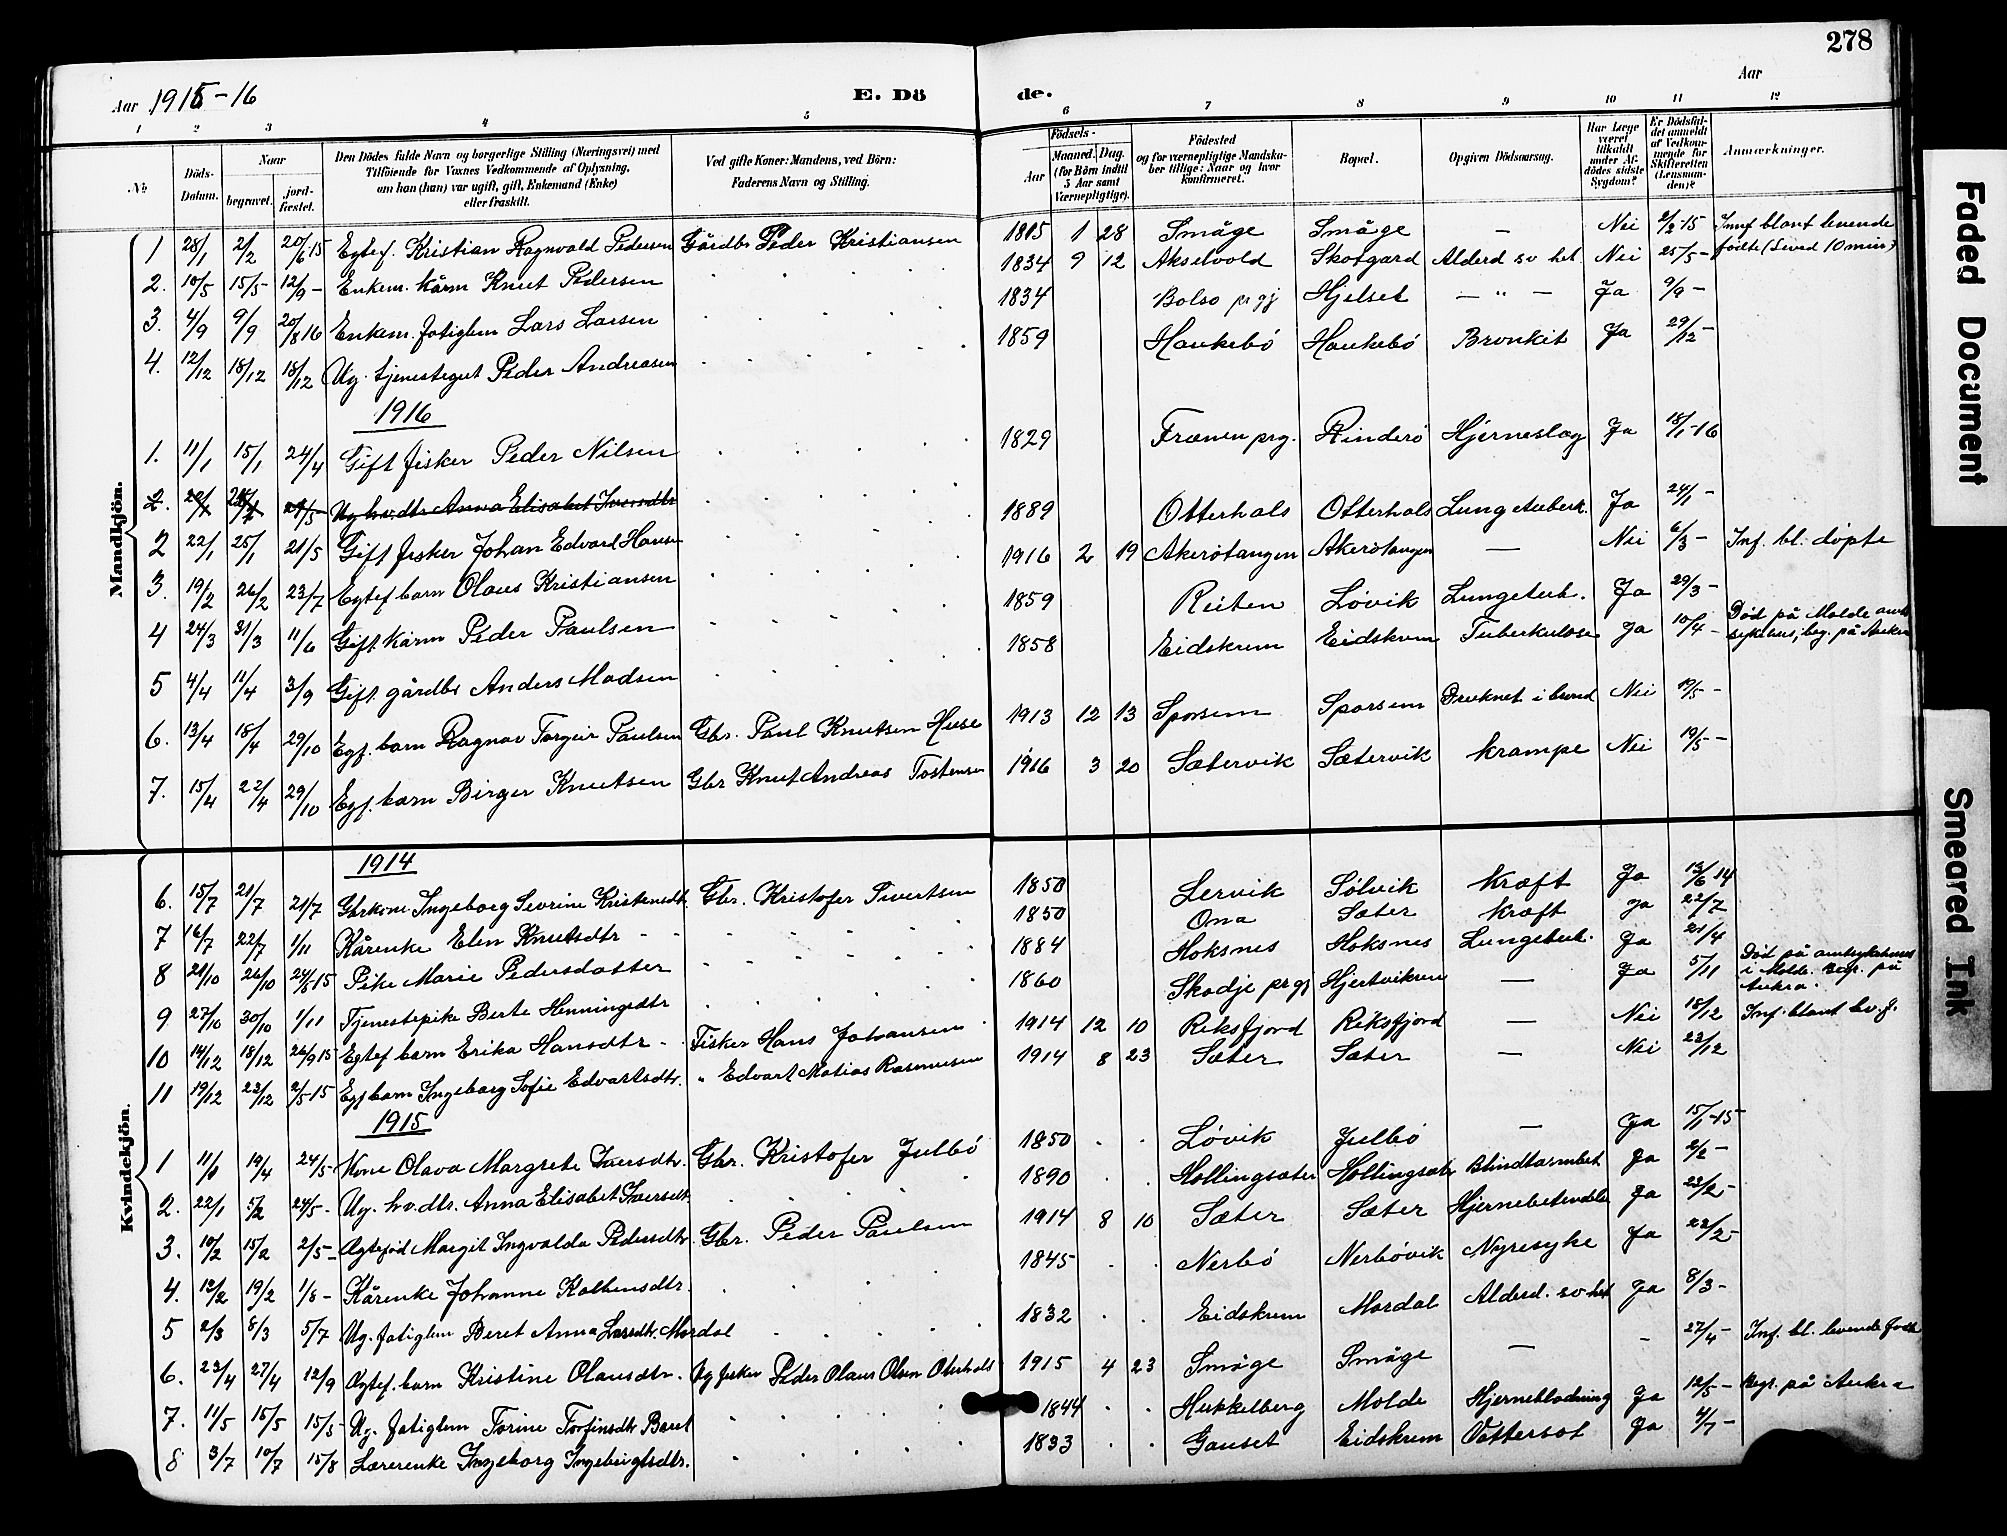 278
Aar 1915-16
E. Dö
de.
Aar
1 2 3 4 5 6 7 8 9 10 11 12
No
Døds-Datum.
Naar
begravet.
jord-fæstet.
Den Dödes fulde Navn og borgerlige Stilling (Næringsvei) med
Tilföiende for Voxnes Vedkommende af Oplysning,
om han (hun) var ugift, gift, Enkemand (Enke)
eller fraskilt.
Ved gifte Koner: Mandens, ved Börn:
Faderens Navn og Stilling.
Födsels-
Aar
Maaned. Dag.
(for Börn indtil
5 Aar samt
Værnepligtige).
Födested
og for værnepligtige Mandska-
ber tillige: Naar og hvor
konfirmeret.
Bopæl.
Opgiven Dödsaarsag.
Har Læge
været
tilkaldt
under Af-
dødes sidste
Sygdom?
Er Dödsfal-
det anmeldt
af Vedkom-
mende for
Skifteretten
(Lensman-
den)?
Anmærkninger.
Mandkjön.
1 28/1 2/2 20/6 15 Egtef. Kristian Ragnvald Pedersen Gårdbr Peder Kristiansen 1815 1 28 Småge Småge — Nei 2/2-15 Innf blant levende fødte (Leved 10 min)
2. 10/5 15/5- 12/9- Enkem. kårm Knut Pedersen 1834 9 12 Akselvold Skotgard Alderd sv het Nei 25/5-
3. 4/9 9/9 20/8 16 Enkem. fatiglem Lars Larsen 1834 Bolsø prgj Hjelset — " — Ja 9/9-
4. 12/12 18/12 18/12 Ug. tjenestegut Peder Andreasen 1859 Haukebø Haukebø Bronkit Ja 29/12-
1916
1. 11/1 15/1 24/4 Gift fisker Peder Nilsen 1829 Frænen prg. Rinderø Hjerneslag Ja 18/1-16
2. 21/5 Ug hv.dtr Anna Elisabet Iversdtr
2 22/1 25/1 21/5 Gift fisker Johan Edvard Hansen 1889 Otterhals Otterhals Lungetuberk. Ja 24/1-
3. 19/2 26/2 23/7 Egtef barn Olaus Kristiansen 1916 2 19 Akerøtangen Akerøtangen — Nei 6/3- Inf. bl. døpte
4 24/3 31/3 11/6 Gift kårm Peder Paulsen 1859 Reiten Løvik Lungetub. Ja 29/3-
5 4/4 11/4 3/9 Gift gårdbr Anders Madsen 1858 Eidskrem Eidskrem Tuberkulose Ja 10/4- Død på Molde amts sykehus, beg. på Aukra
6. 13/4 18/4 29/10 Egf. barn Ragnar Torgeir Paulsen Gbr. Paul Knutsen Huse 1913 12 13 Sporsem Sporsem Druknet i brønd Nei 19/5-
7. 15/4 22/4 29/10 Egf. barn Birger Knutsen Gbr Knut Andreas Tostensen 1916 3 20 Sætervik Sætervik krampe Nei 19/5-
Kvindekjön.
1914
6. 15/7 21/7 21/7 Gbrkone Ingeborg Sevrine Kristensdtr Gbr. Kristofer Sivertsen 1850 Lervik Sølvik kræft Ja 13/6 14
7 16/7 22/7 1/11 Kårenke Elen Knutsdtr 1850 Ona Sæter kræft ja 22/7
8 21/10 26/10 24/5 15 Pike Marie Pedersdatter 1884 Hoksnes Hoksnes Lungetub. Ja 21/4
9 27/10 30/10 1/11 Tjenestepike Berte Henningsdtr 1860 Skodje prgj Hjertvikren — Ja 5/11 Død på amtsykehuset i Molde. Begr. på Aukra.
10 14/12 18/12 26/9 15 Egtef barn Erika Hansdtr Fisker Hans Johansen 1914 12 10 Riksfjord Riksfjord — Nei 18/12 Inf. blant lev f.
11 19/12 23/12 2/5-15 Egf barn Ingeborg Sofie Edvartsdtr. " Edvart Matias Rasmusen 1914 8 23 Sæter Sæter — Nei 23/12
1915
1 11/1 19/4 24/5- Kone Olava Margrete Iversdtr. Gbr. Kristofer Julbø 1850 Løvik Julbø — Ja 15/1-15-
2. 22/1 5/2 24/5- Ug. hv.dtr. Anna Elisabet Iversdtr 1890 Hollingsæter Hollingsæter Blindtarmbet ja 2/2-
3. 10/2 15/2 2/5- Ægtefød Margit Ingvalda Pedersdtr. Gbr. Peder Paulsen 1914 8 10 Sæter Sæter Hjernebetendelse Ja 23/2-
4. 12/2 19/2 1/8- Kårenke Johanne Kolbensdtr. 1845 Nerbø Nerbøvik Nyresyke Ja 22/2-
5 2/3 8/3 5/7 Ug. fatiglem Beret Anna Larsdtr. Mordal 1832 Eidskrem Mordal Alderd. sv het Ja 8/3-
6. 23/4 27/4 12/9 Ægtef. barn Kristine Olausdtr. Ug fisker Peder Olaus Olsen Oterhals 1915 4 23 Småge Småge — - 27/4- Inf. bl. levende fødte
7. 11/5 15/5 15/5- Ug. fatiglem Torine Torfinsdtr Baret 1844 Hukkelberg Molde Hjerneblødning Ja 12/5- Begr. på Aukra
8 3/7 10/7 15/8 Lærerenke Ingeborg Ingebrigtsdtr. 1833 Gauset Eidskrem Vattersot Ja 4/7-
Faded Document
Smeared Ink